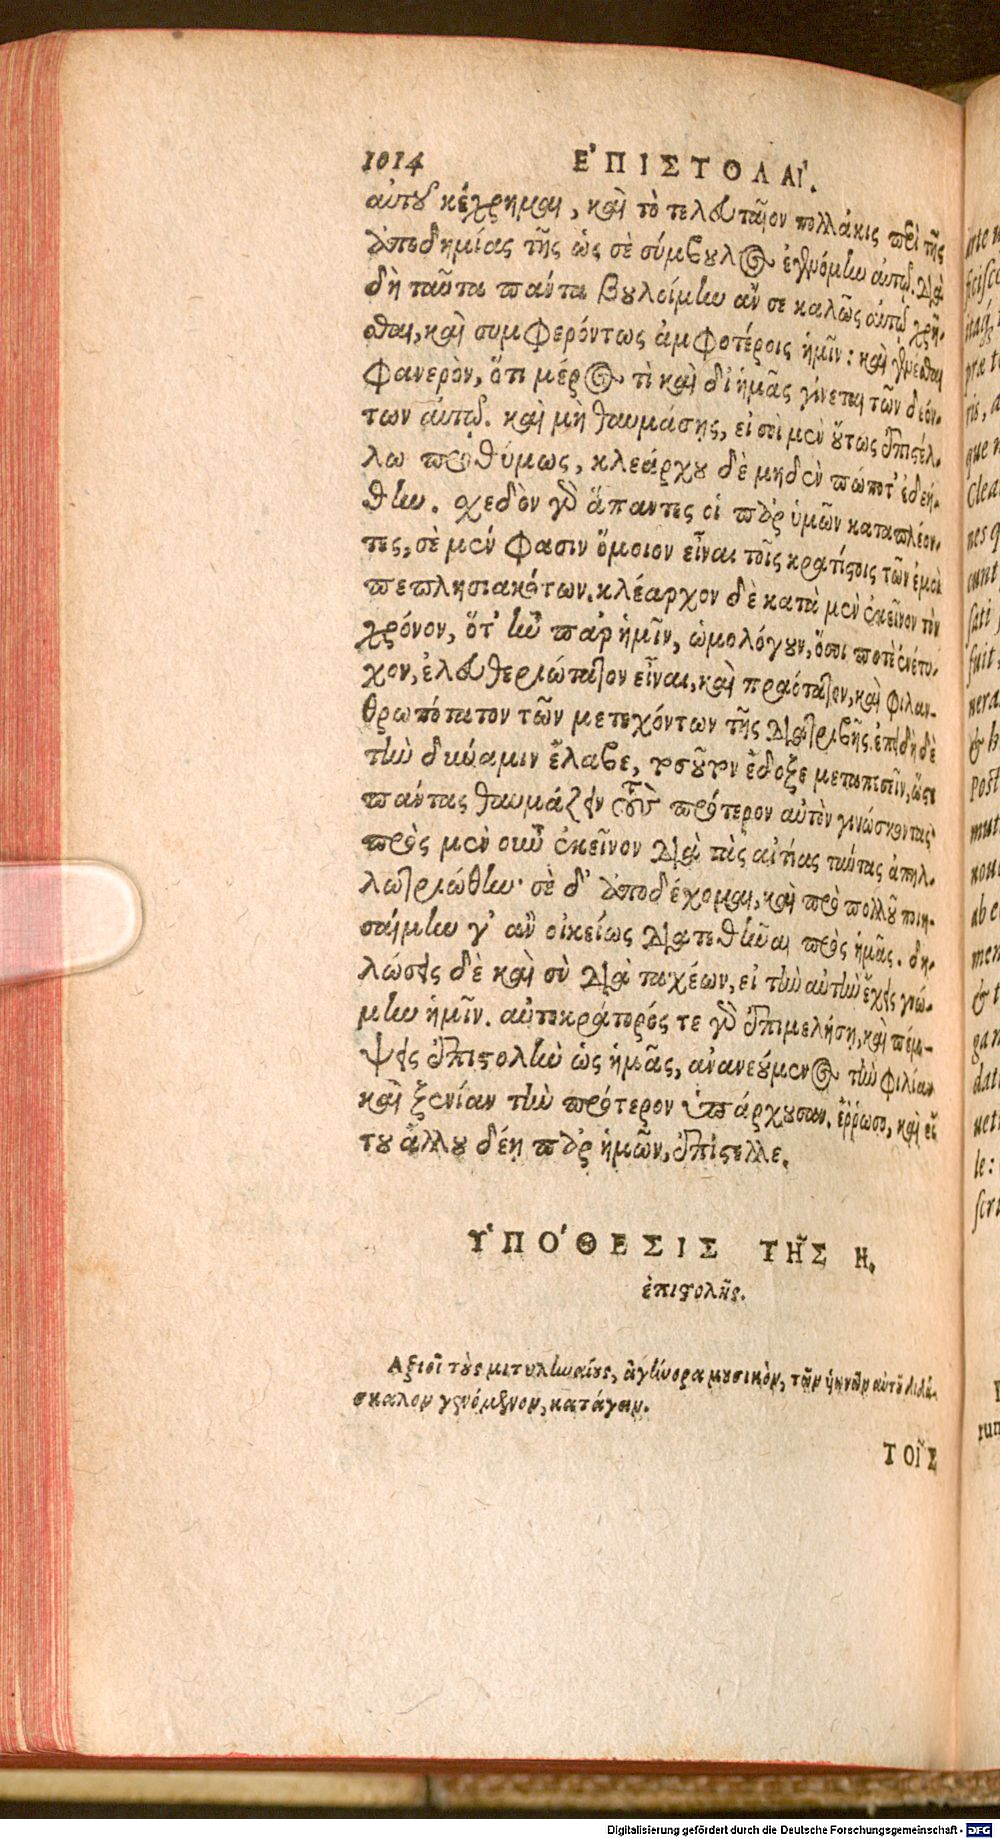 1014 ἘΠΙΣΤΟΛΑΊ.
αὐτοῦ κέχρημαι, καὶ τὸ τελευταῖον πολλάκις περὶ τῆς
ἀποδημίας τῆς ὡς σὲ σύμβουλος ἐγενόμην αὐτῷ. διὰ
δὴ ταῦτα πάντα βουλοίμην ἄν σε καλῶς αὐτῷ χρῆ-
σθαι, καὶ συμφερόντως ἀμφοτέροις ἡμῖν: καὶ γενέσθαι
φανερὸν, ὅτι μέρος τὶ καὶ δι' ἡμᾶς γίνεται τῶν δεόν-
των αὐτῷ. καὶ μὴ θαυμάσῃς, εἰ σοὶ μὲν οὕτως ἐπιστέλ-
λω προθύμως, κλεάρχου δὲ μηδὲν πώποτ' ἐδεή-
θην. σχεδὸν γὰρ ἅπαντες οἱ παρ' ὑμῶν καταπλέον-
τες, σὲ μὲν φασιν ὅμοιον εἶναι τοῖς κρατίστοις τῶν ἐμοὶ
πεπλησιακότων. κλέαρχον δὲ κατὰ μὲν ἐκεῖνον τὸν
χρόνον, ὅτ' ἦν παρ' ἡμῖν, ὡμολόγουν, ὅσοι ποτὲ ἐνέτυ-
χον, ἐλευθεριώτατον εἶναι, καὶ πραότατον, καὶ φιλαν-
θρωπότατον τῶν μετεχόντων τῆς διατριβῆς. ἐπειδὴ δὲ
τὴν δύναμιν ἔλαβε, τοσοῦτον ἔδοξε μεταπεσεῖν, ὥστε
πάντας θαυμάζειν τοὺς πρότερον αὐτὸν γινώσκοντας
πρὸς μὲν οὖν ἐκεῖνον διὰ τὰς αἰτίας ταύτας ἀπηλ-
λοτριώθην· σὲ δ' ἀποδέχομαι, καὶ πρὸ πολλοῦ ποιη-
σαίμην γ' ἂν οἰκείως διατεθῆναι πρὸς ἡμᾶς. δη-
λώσεις δὲ καὶ σὺ διὰ ταχέων, εἰ τὴν αὐτὴν ἔχεις γνώ-
μην ἡμῖν. αὐτοκράτορός τε γὰρ ἐπιμελήσῃ, καὶ πέμ-
ψεις ἐπιστολὴν ὡς ἡμᾶς, ἀνανεούμενος τὴν φιλίαν
καὶ ξενίαν τὴν πρότερον ὑπάρχουσαν. ἔρρωσο, καὶ εἴ
του ἄλλου δέῃ παρ' ἡμῶν, ἐπίστελλε.
ὙΠΌΘΕΣΙΣ ΤΗ͂Σ Η.
ἐπιστολῆς.
Ἀξιοῖ τοὺς μιτυληναίους, ἀγήνορα μουσικὸν, τῶν ὑιωνῶν αὐτοῦ διδά-
σκαλον γενόμενον, κατάγειν.
ΤΟΙ͂Σ
Digitalisierung gefördert durch die Deutsche Forschungsgemeinschaft - DFG